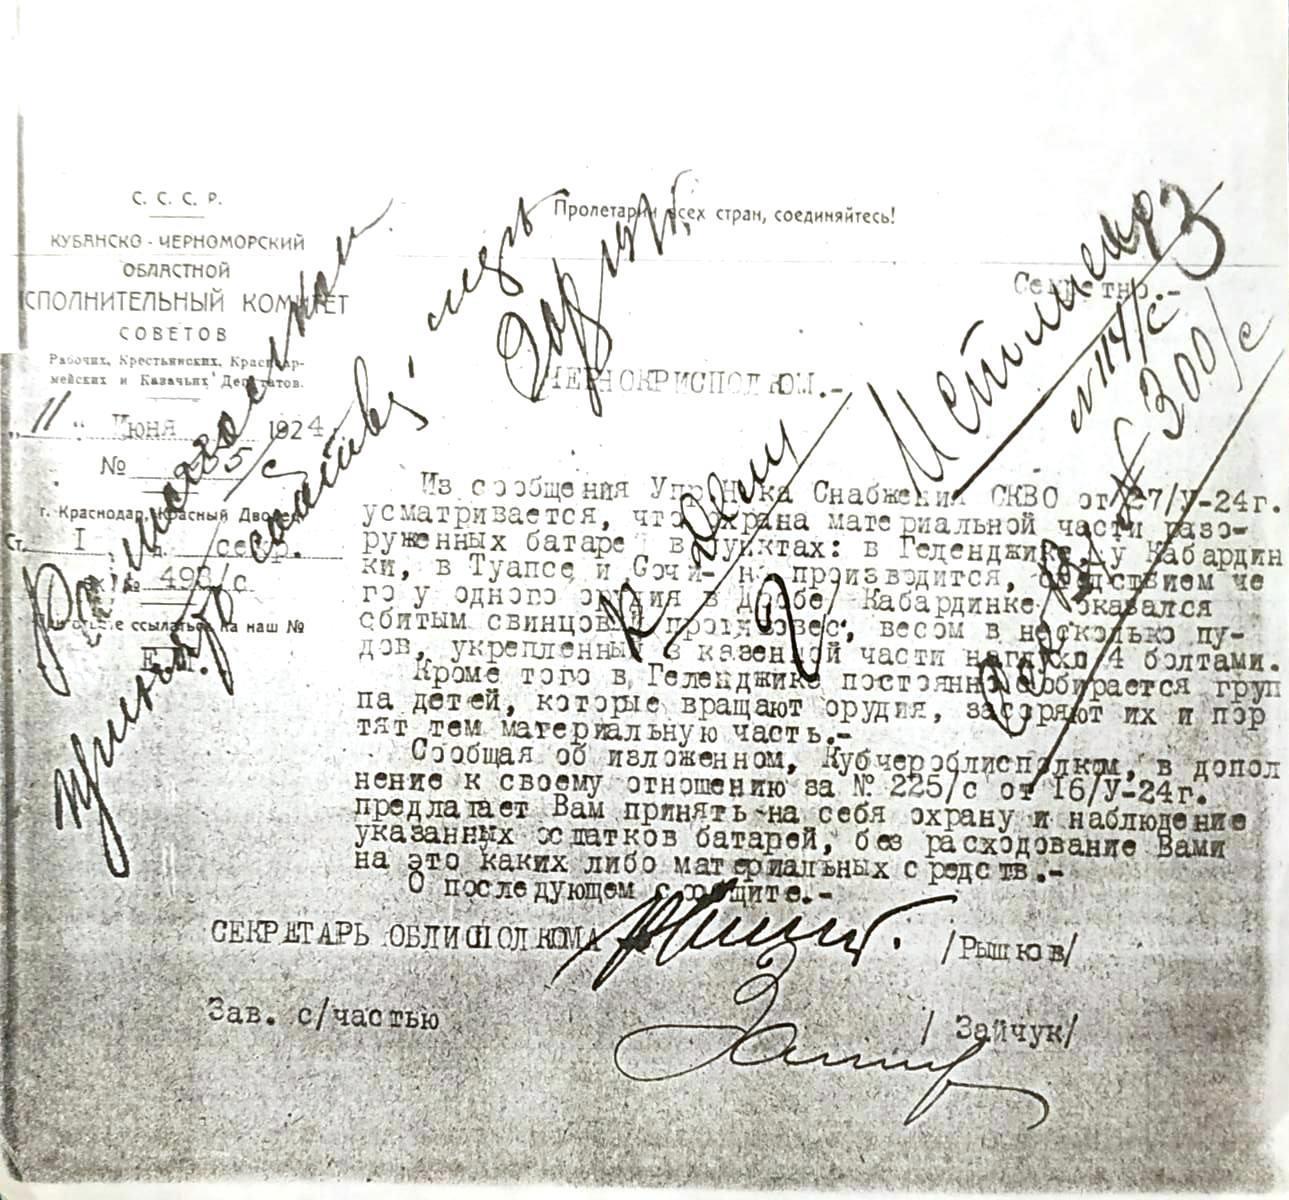 С. С. С. Р.
КУБАНСКО-ЧЕРНОМОРСКИЙ
ОБЛАСТНОЙ
СПОЛНИТЕЛЬНЫЙ КОМИТЕТ
СОВЕТОВ
Рабочих, Крестьянских, Красноар-
мейских и Казачьих Депутатов.
„11" Июня 1924
№
г. Краснодар, Красный Дворец
Ст. I
№ 498/с.
ссылаться на наш №
Пролетарии всех стран, соединяйтесь!
Секретно.-
№ 114/с
№ 300/с
ЧЕРНОКРИСПОЛКОМ.-
Из сообщения Упр-ника Снабжения СКВО от 27/У-24г.
усматривается, что охрана материальной части разо-
руженных батарей в пунктах: в Геленджике, у Кабардин
ки, в Туапсе и Сочи- не производится, следствием че
го у одного орудия в Дообе/ Кабардинке/ оказался
сбитым свинцовый противовес, весом в несколько пу-
дов, укрепленный в казенной части наглухо 4 болтами.
Кроме того в Геленджике постоянно собирается груп
па детей, которые вращают орудия, засоряют их и пор
тят тем материальную часть.-
Сообщая об изложенном, Кубчероблисполком, в допол
нение к своему отношению за № 225/с от 16/У-24г.
предлагает Вам принять на себя охрану и наблюдение
указанных остатков батарей, без расходование Вами
на это каких либо материальных средств.-
О последующем сообщите.-
СЕКРЕТАРЬ ОБЛИСПОЛКОМА /Рышков/
Зав. с/частью / Зайчук/